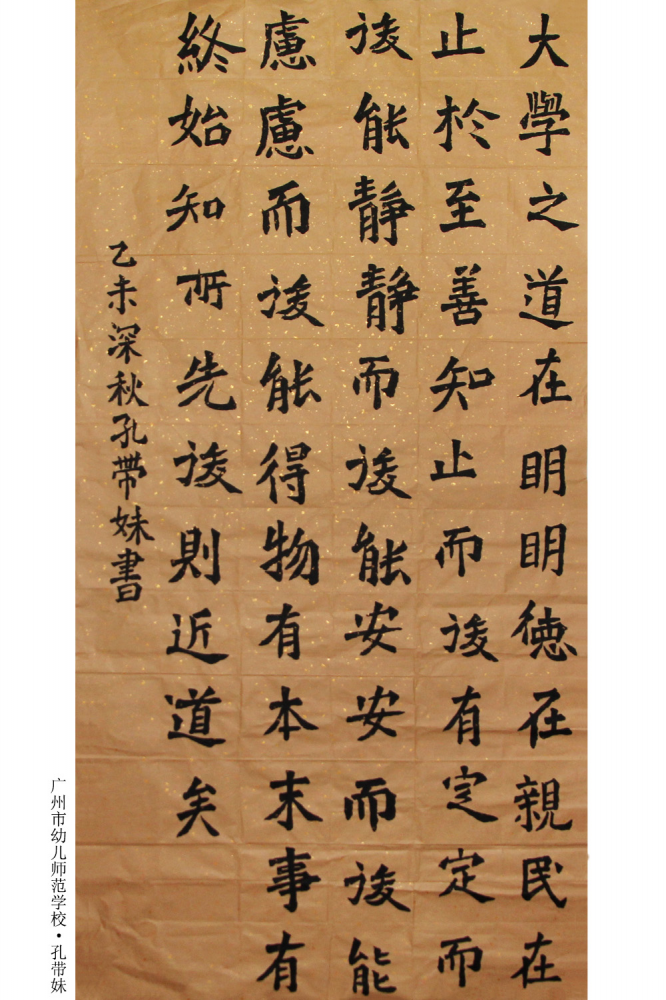 大學之道在明明德在親民在
止於至善知止而後有定定而
後能靜靜而後能安安而後能
慮慮而後能得物有本末事有
終始知所先後則近道矣
乙未深秋孔帶妹書
广州市幼儿师范学校·孔带妹